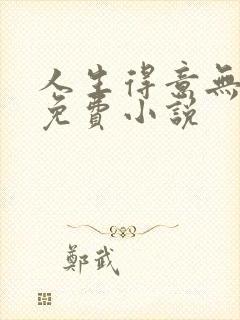 人生得意無
免費小說
鄭武